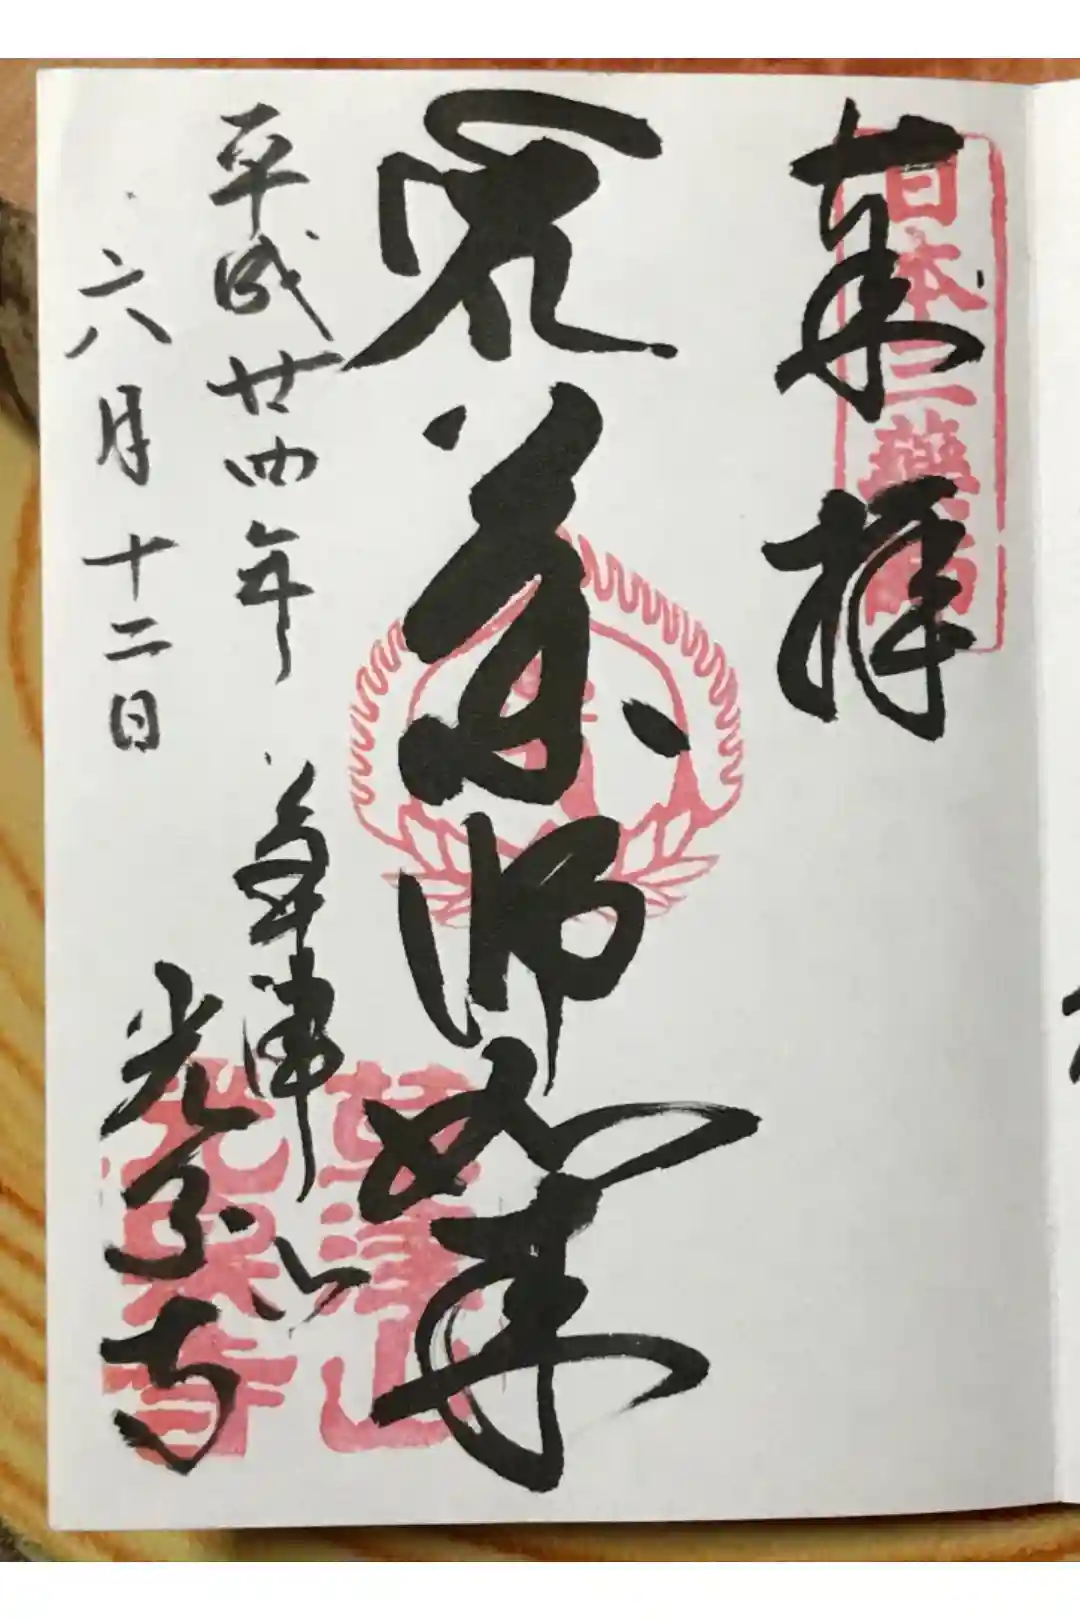 奉拝
日本三藥師
薬師如来
平成廿四年
六月十二日
草津山
光泉寺
草津山
光泉寺